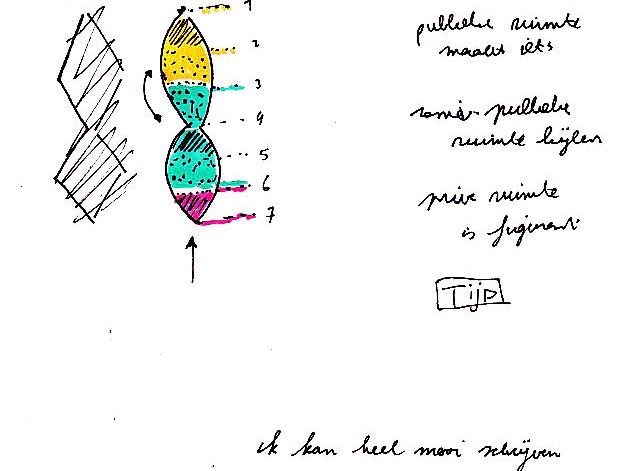 1
2
3
4
5
6
7
publieke ruimte
maakt iets
publieke
ruimte
privé ruimte
is
Tijd
ik kan heel mooi schrijven